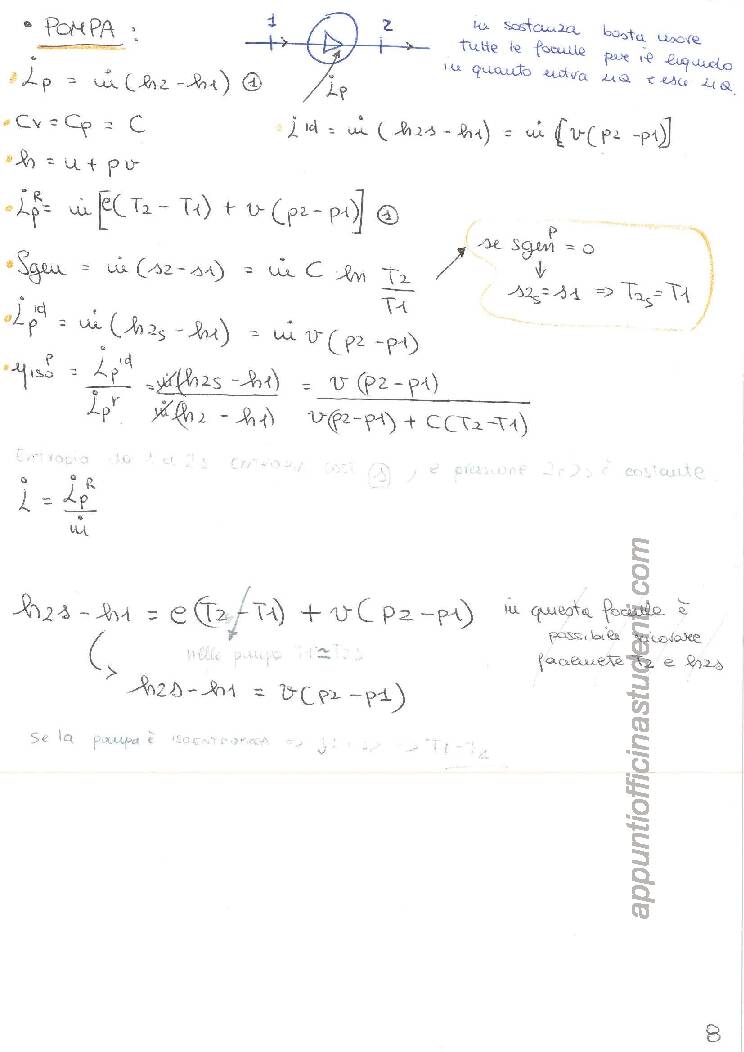 • POMPA :
1 2
L̇p
in sostanza basta usare
tutte le formule per il liquido
in quanto entra LIQ e esce LIQ.
• L̇p = ṁ (h2 - h1) ①
• Cv = Cp = C
• L̇ id = ṁ (h2s - h1) = ṁ [v(p2 - p1)]
• h = u + pv
• L̇p^R = ṁ [c(T2 - T1) + v(p2 - p1)] ①
• Sgen = ṁ (s2 - s1) = ṁ C ln T2/T1
se sgen^P = 0
↓
s2s = s1 ⇒ T2s = T1
• L̇p^id = ṁ (h2s - h1) = ṁ v (p2 - p1)
• ηiso^P = L̇p^id / L̇p^r = ṁ(h2s - h1) / ṁ(h2 - h1) = v(p2 - p1) / v(p2 - p1) + C(T2 - T1)
Entropia da 1 a 2s, e pressione 2 e 2s è costante
L̇ = L̇p^R / ṁ
h2s - h1 = c(T2 - T1) + v(p2 - p1)
in questa formula è
possibile ricavare
facilmente T2 e h2s
nelle pompe T1 ≃ T2s
h2s - h1 = v(p2 - p1)
se la pompa è ISOENTROPICA ⇒ ⇒ T1 = T2
appuntiofficinastudent.com
8